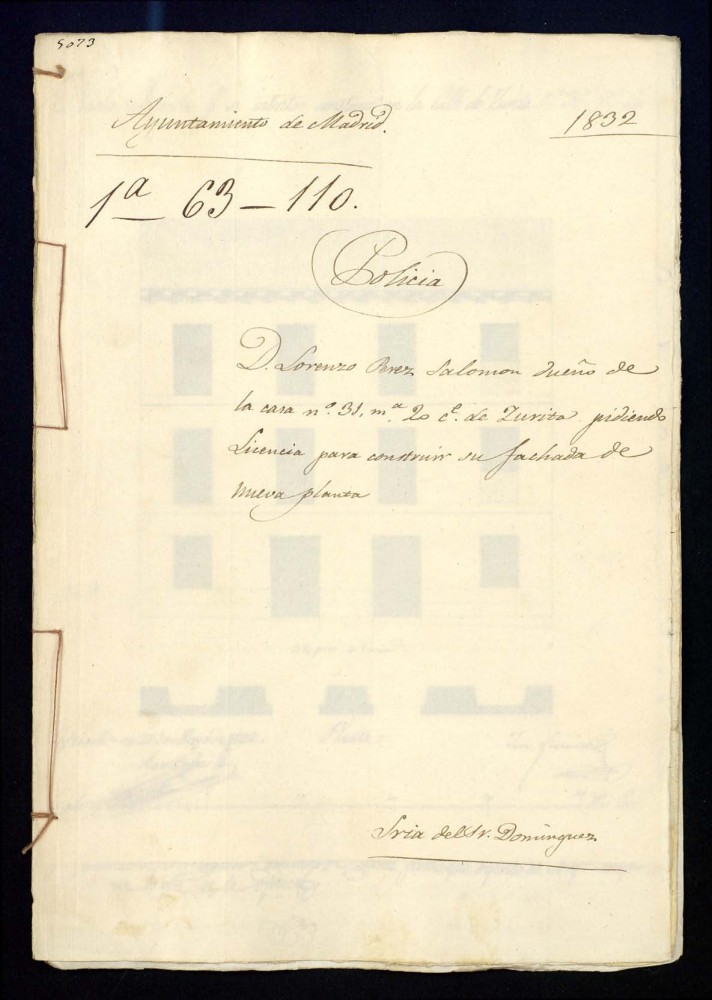 5073
Ayuntamiento de Madrid.
1832
1ª 63-110.
Policia
D. Lorenzo Perez Salomon dueño de
la casa nº. 31, mª. 20 cᵉ. de Zurita pidiendo
Licencia para construir su fachada de
nueva planta
Sria del Sr. Dominguez